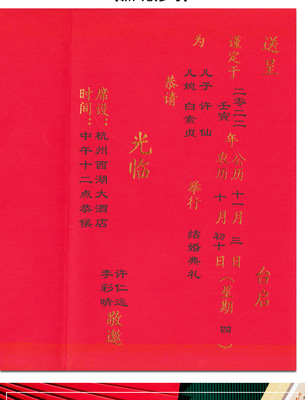 送呈 台启
谨定于 二零二二 年 公历 十一月 三 日（星期 四）
壬寅 农历 十月 初十日
为 儿子 许仙 举行 结婚典礼
儿媳 白素贞
恭请
光临
席设：杭州西湖大酒店
时间：中午十二点恭候
许仁远
李彩晴 敬邀